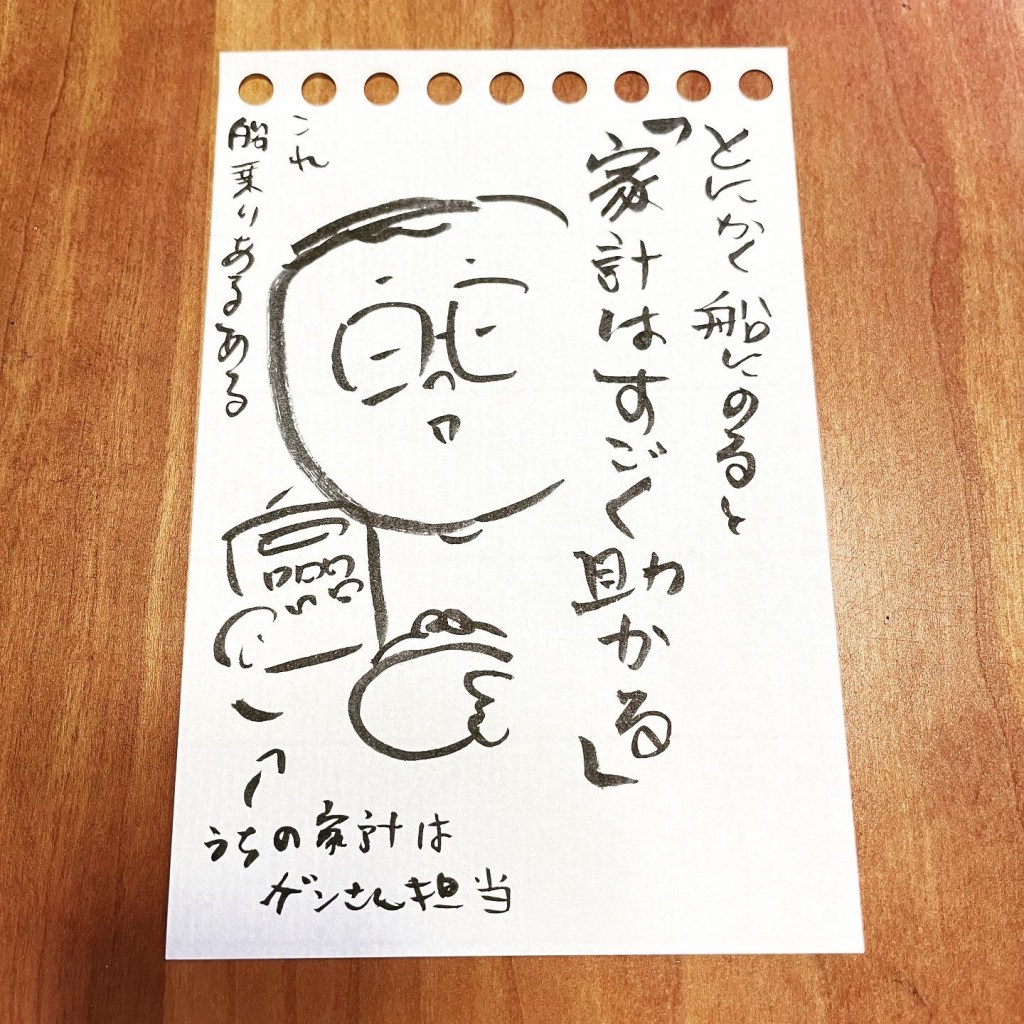 とにかく船にのると
「家計はすごく助かる」
これ
船乗りあるある
うちの家計は
ゲンさん担当